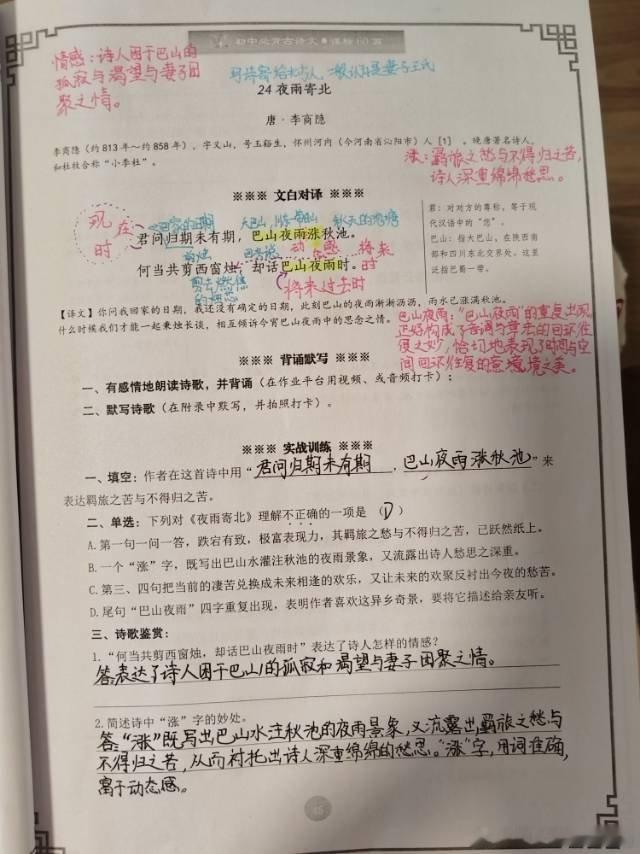 初中必背古诗文●课标60篇
情感：诗人困于巴山的
孤寂与渴望与妻子团
聚之情。
24 夜雨寄北
唐·李商隐
李商隐（约813年～约858年），字义山，号玉谿生，怀州河内（今河南省沁阳市）人[1]。晚唐著名诗人，
和杜牧合称“小李杜”。
涨：羁旅之愁与不得归之苦，
诗人深重绵绵愁思。
※※※ 文白对译 ※※※
现在
时
回家的日期
秋天的池塘
君问归期未有期，巴山夜雨涨秋池。
动感
将来
何当共剪西窗烛，却话巴山夜雨时。
时
将来过去时
君：对对方的尊称，等于现
代汉语中的“您”。
巴山：指大巴山，在陕西南
部和四川东北交界处。这里
泛指巴蜀一带。
【译文】你问我回家的日期，我还没有确定的日期，此刻巴山的夜雨淅淅沥沥，雨水已涨满秋池。
什么时候我们才能一起秉烛长谈，相互倾诉今宵巴山夜雨中的思念之情。
巴山夜雨：“巴山夜雨”的重复出现，
正好构成了音调与章法的回环往
复之妙，恰切地表现了时间与空
间回环往复的意境之美。
※※※ 背诵默写 ※※※
一、有感情地朗读诗歌，并背诵（在作业平台用视频、或音频打卡）；
二、默写诗歌（在附录中默写，并拍照打卡）。
※※※ 实战训练 ※※※
一、填空：作者在这首诗中用“君问归期未有期，巴山夜雨涨秋池”来
表达羁旅之苦与不得归之苦。
二、单选：下列对《夜雨寄北》理解不正确的一项是（D）
A.第一句一问一答，跌宕有致，极富表现力，其羁旅之愁与不得归之苦，已跃然纸上。
B.一个“涨”字，既写出巴山水灌注秋池的夜雨景象，又流露出诗人愁思之深重。
C.第三、四句把当前的凄苦兑换成未来相逢的欢乐，又让未来的欢聚反衬出今夜的愁苦。
D.尾句“巴山夜雨”四字重复出现，表明作者喜欢这异乡奇景，要将它描述给亲友听。
三、诗歌鉴赏：
1.“何当共剪西窗烛，却话巴山夜雨时”表达了诗人怎样的情感？
答表达了诗人困于巴山的孤寂和渴望与妻子团聚之情。
2.简述诗中“涨”字的妙处。
答“涨”既写出巴山水注秋池的夜雨景象，又流露出羁旅之愁与
不得归之苦，从而衬托出诗人深重绵绵的愁思。“涨”字，用词准确，
富于动态感。
45